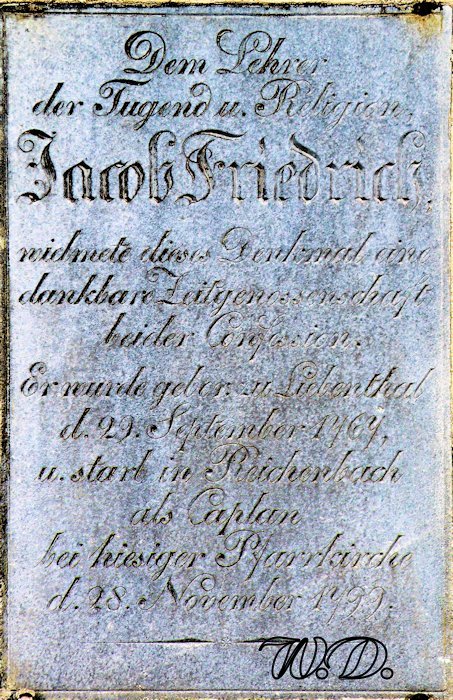 Dem Lehrer
der Tugend u. Religion,
Jacob Friedrich,
widmete dieses Denkmal eine
dankbare Zeitgenossenschaft
beider Confession.
Er wurde gebor. zu Liebenthal
d. 29. September 1769,
u. starb in Reichenbach
als Caplan
bei hiesiger Pfarrkirche
d. 28. November 1799.
W.D.